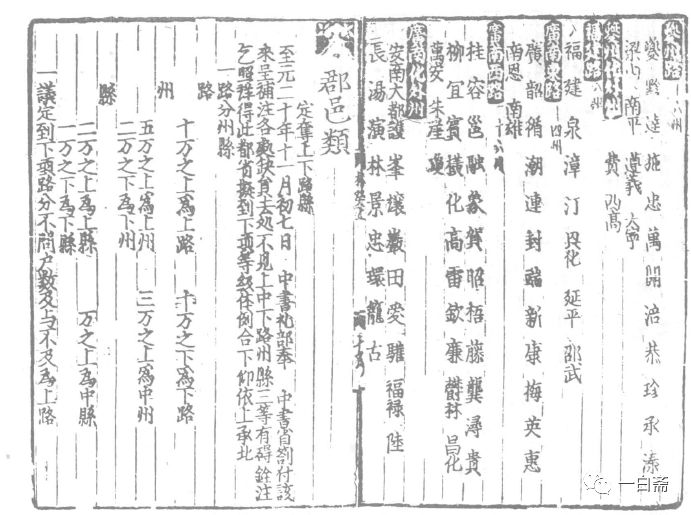 夔州路 八州
夔 黔 達 施 忠 萬 開 涪 恭 珍 承 溱
梁山 南平 遵義 大寧
福建路 八州
福 建 泉 漳 汀 興化 延平 邵武
廣南東路 十四州
廣 韶 循 潮 連 封 端 新 康 梅 英 惠
南恩 南雄
廣南西路
桂 容 邕 融 象 賀 昭 梧 藤 龔 潯 貴
柳 宜 賓 橫 化 高 雷 欽 廉 鬱林 昌化
萬安 朱崖 瓊
廣南化外州
安南大都護 峯 讓 巖 田 愛 驩 福祿 陸
長 湯 演 林 景 忠 環 籠 古
郡邑類
定奪上下路縣
至元二十年十一月初七日 中書禮部奉 中書省劄付該
來呈補注各處缺員去処不見上中下路州縣三等有碍銓注
乞照詳得此都省擬到下項等級体例合下仰依上承此
一路分州縣
路
十万之上爲上路 十万之下爲下路
州
五万之上爲上州 三万之上爲中州
二万之下爲下州
縣
二万之上爲上縣 万之上爲中縣
一万之下爲下縣
一議定到下項路分不問户數及与不及爲上路
一白斋